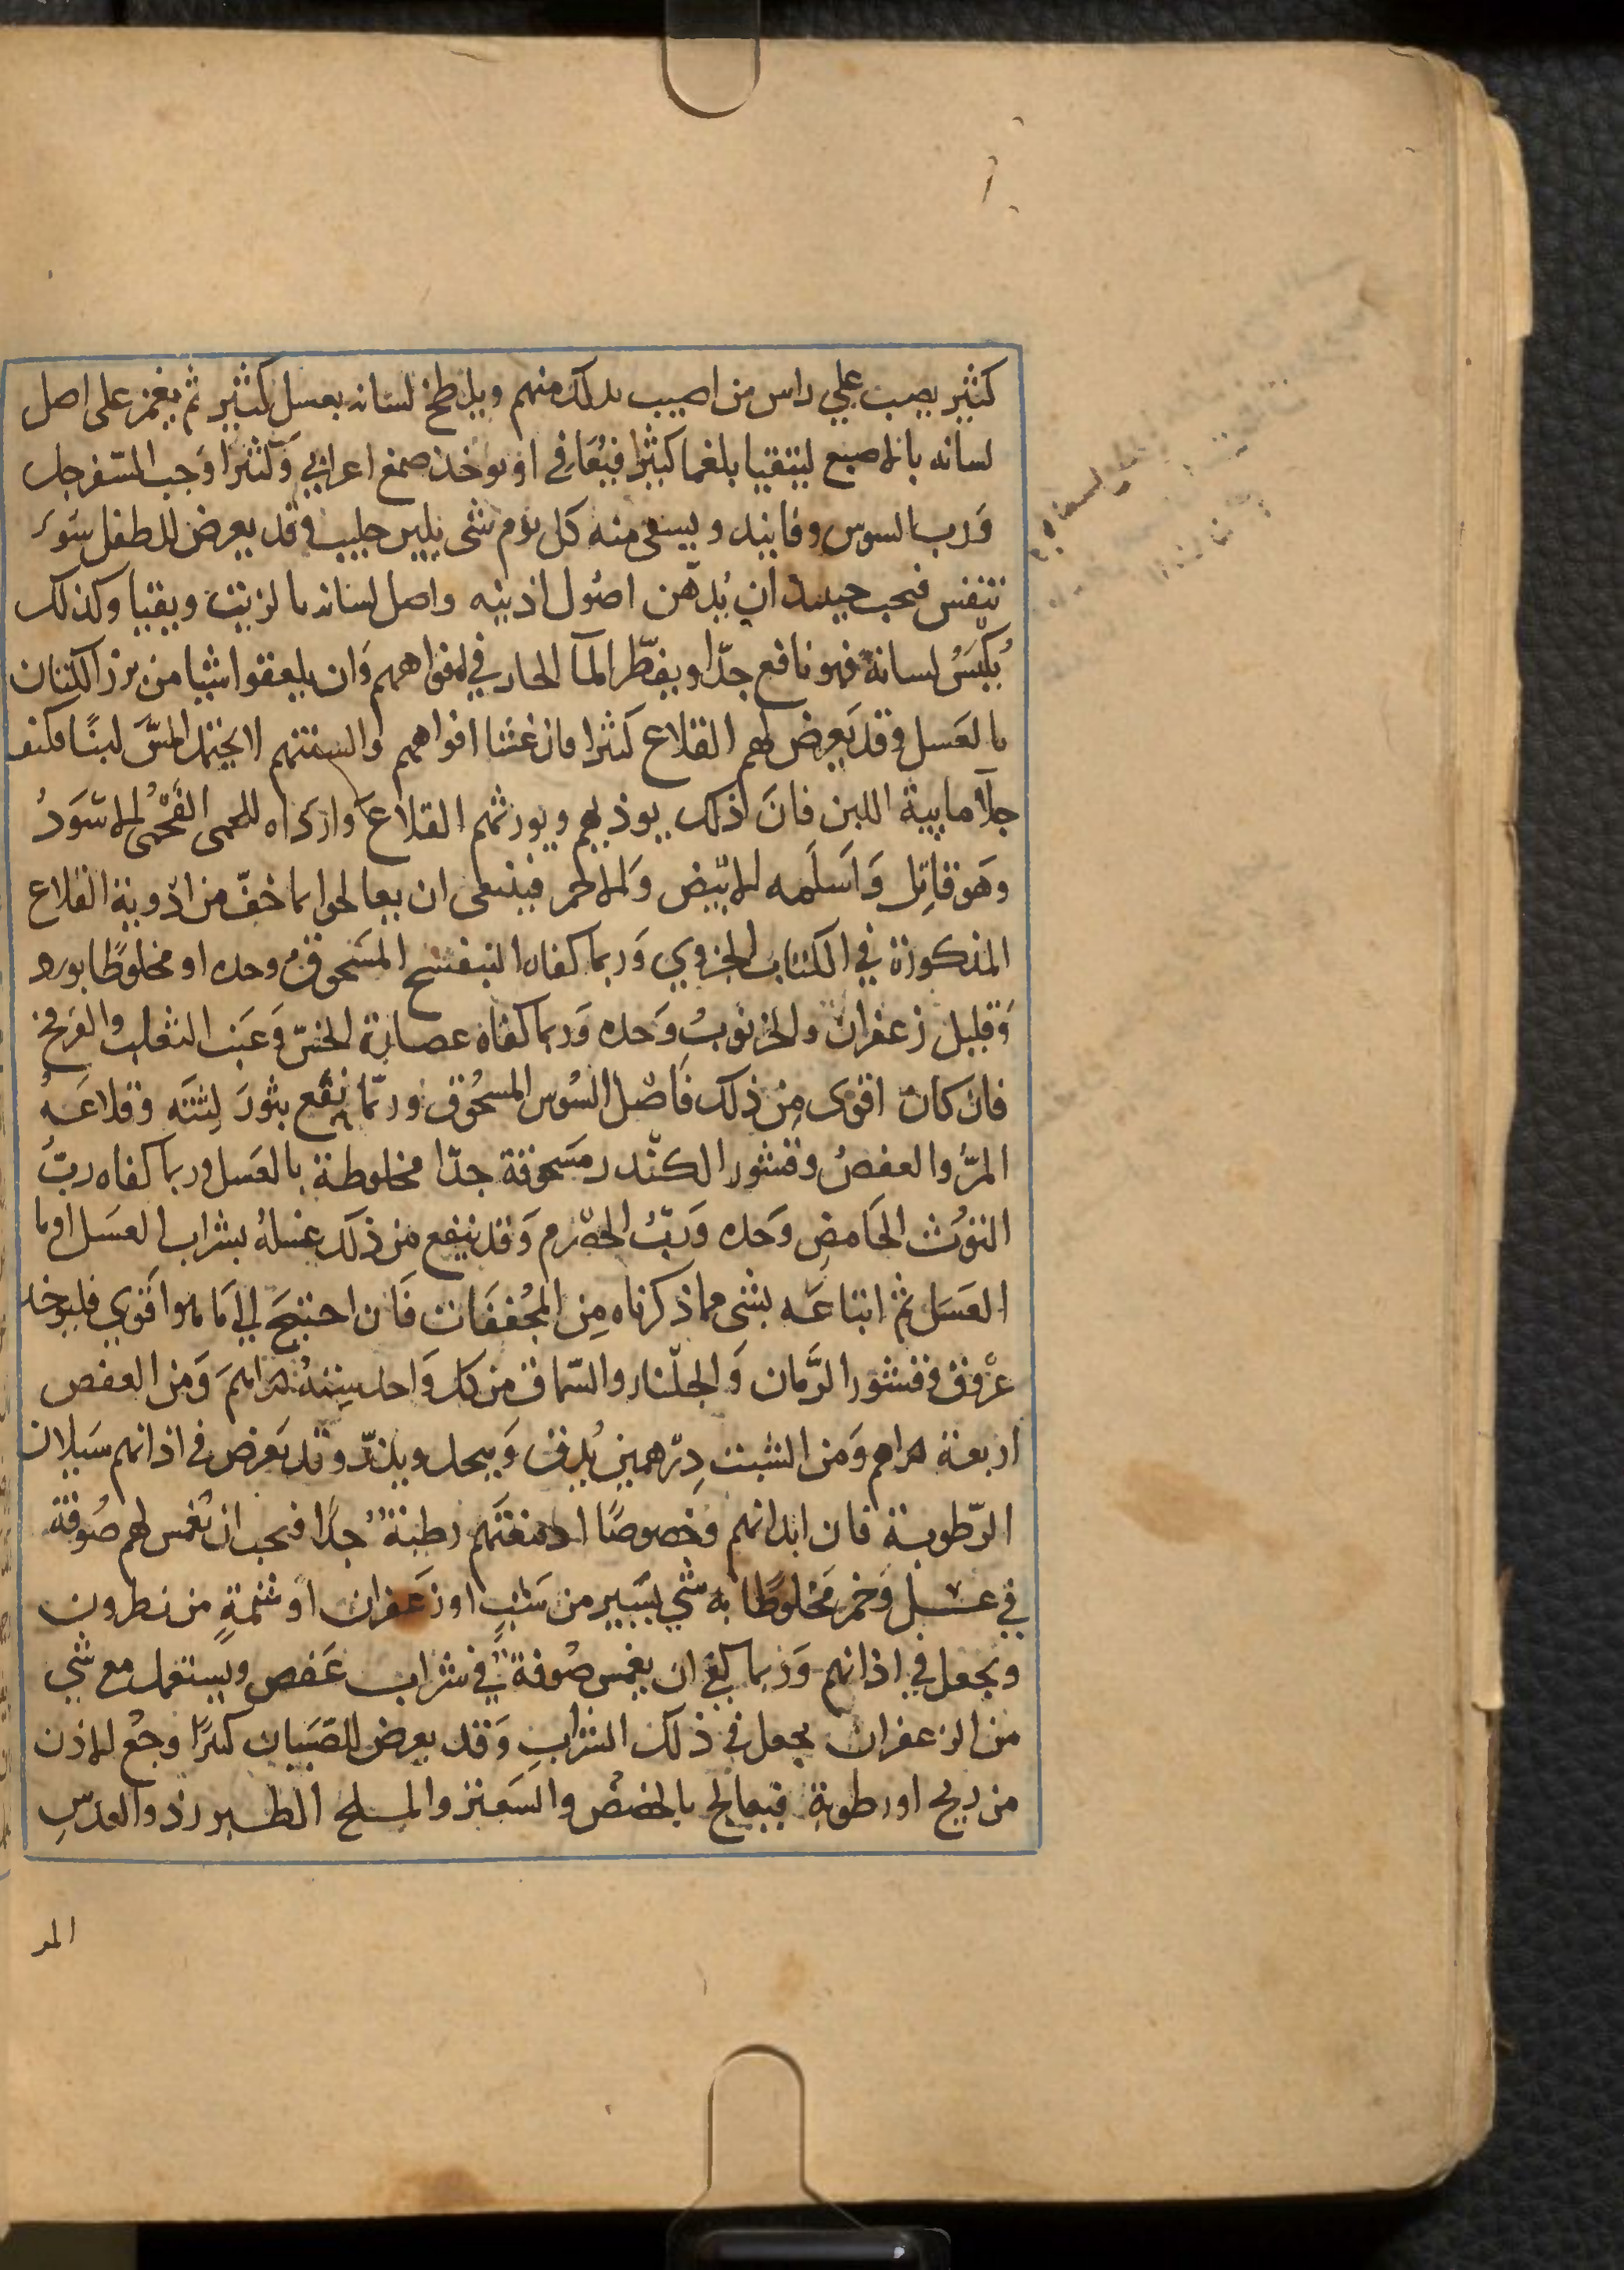 كثير يصب علي راس من اصيب بذلك منهم ويلطخ لسانه بعسل كثير ثم يغمز على اصل
لسانه بالاصبع ليتقيا بلغما كثيرا فيتعافى او يوخذ صمغ اعرابي وكثيرا وحب السفرجل
ورب السوس وفانيد ويسقى منه كل يوم شى بلبن حليب وقد يعرض للطفل سوء
تنفس فيجب حينيذ ان يُدهن اصُول اذنيه واصل لسانه بالزيت ويقيا وكذلك
يُكبَسُ لسانه فهو نافع جدّا ويقطّر المآ الحار في افواههم وَان يلعقوا شيا من بزر الكتان
بالعَسل وقد يَعرض لهم القلاع كثيرا فان غشا افواههم والسنتهم لا يحتمل المسَّ لينًا فكيف
جلآ مايية اللبن فانَ ذلك يوذيهم ويورثهم القلاع وارداه للحمى الفَحْمى الاسَودُ
وهَو قاتِل وَاَسلَمه الابيض وَالاحمر فينبغى ان يعالجوا بما خفّ من ادْوية القلاع
المذكورة في الكتاب الجزوي وَربما كفاه البنفسج المسَحوق وحده او مخلوطًا بورد
وَقليل زعفران والخرنوبُ وَحده وَربما كفاه عصارة الخسّ وَعنَب الثعلب والفرفخ
فان كان اقوى مِن ذلك فاَصْل السُوس المسحُوق وربّما نفَع بثورَ لِثتَه وقلاعَهُ
المرُّ والعفصُ وقشور الكنْدر مسَحوقة جدّا مخلوطة بالعَسل وربما كفاه ربّ
التوُت الحَامضِ وَحده وَربُّ الحصْرم وَقد ينفع مِن ذلك غسلهُ بشراب العسَل او ما
العسَل ثم اتباعَه بشى مما ذكرناه مِن المجُففَات فَان احتيجَ الي مَا هو اقوي فليوخذ
عرْوق وقشور الرُّمان وَالجلّنار والسّماق من كل وَاحد سِتةُ دراهمَ وَمن العفص
اربعة دراهم وَمن الشبت دِرْهمين يُدق وَينخل ويذرّ وقد يَعرض فى اذانهم سَيلان
الرّطوبة فان ابدانهم وَخصوصًا ادمغتَهم رطبة جدًا فيجب ان تغْمس لهم صُوفة
في عسل وَخمر مَخلوطًا به شي يسَير من شَبٍ او زَعفران او شمةٍ من نطرون
وتجعل في اذانهم وَربما كفي ان يغمس صُوفة في شراب عَفص ويستعمل مع شي
من الزعفران يجعل في ذلك الشرابِ وَقد يعرض للصَبيان كثيرًا وجعُ الاذن
من ريح او رطوبة فيعالج بالحضض والسَعتر والملح الطبرزذ والعدسِ
المر